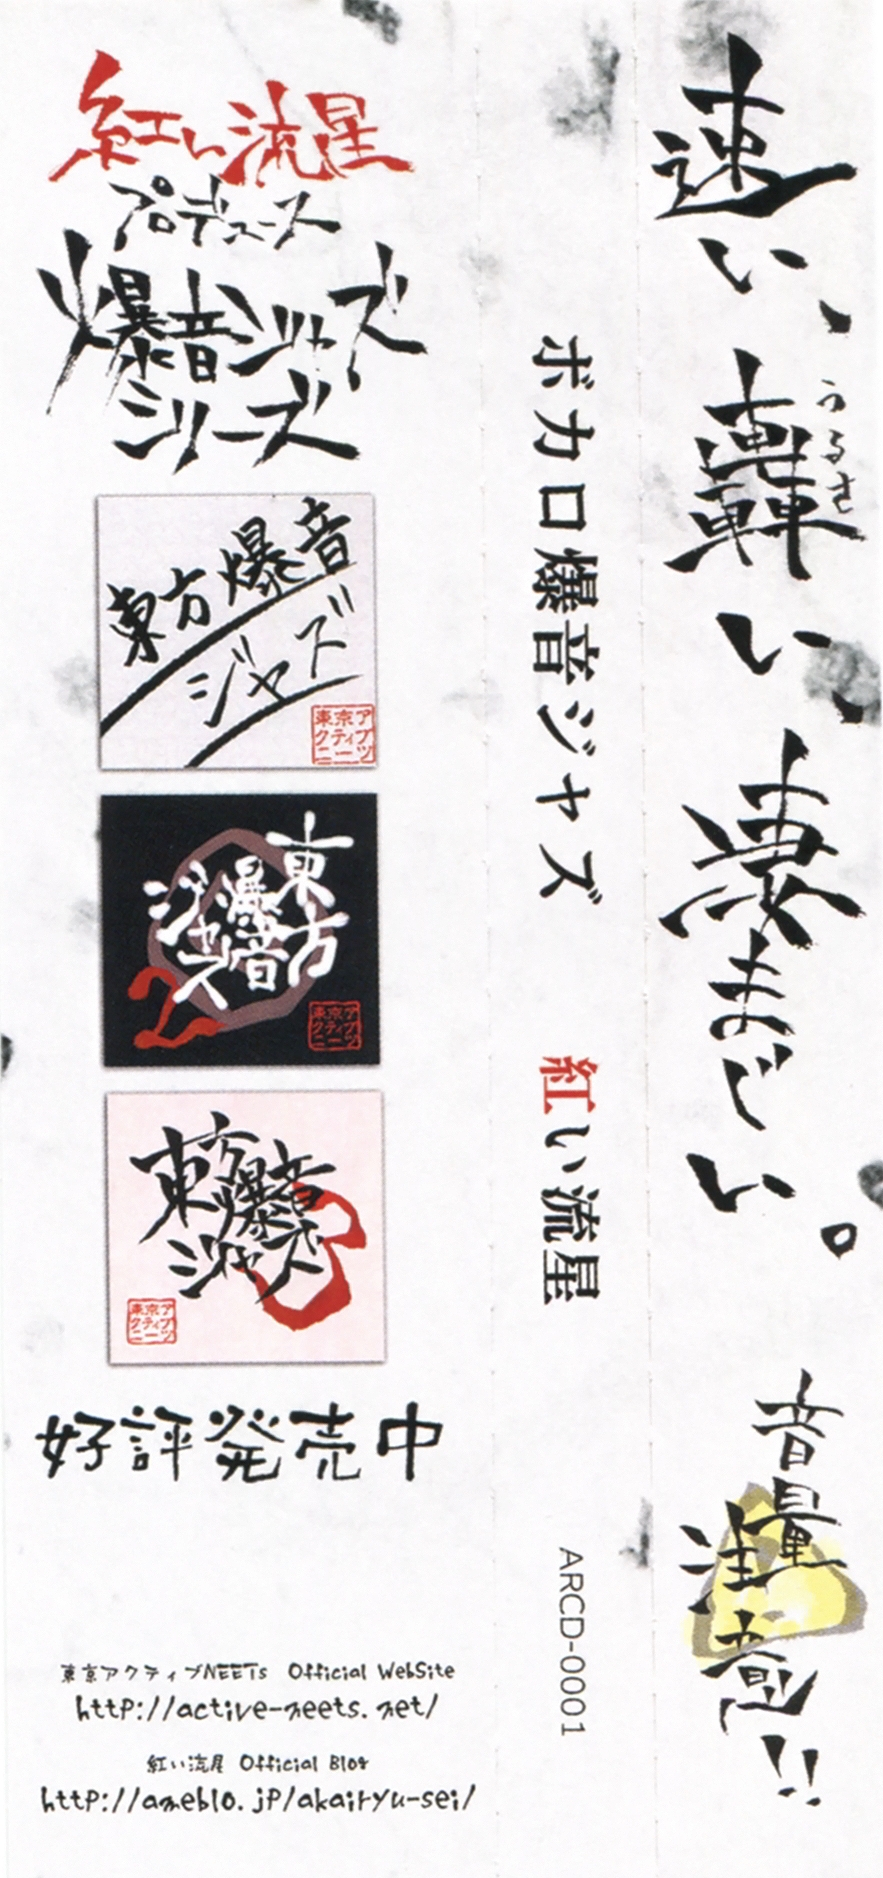 速い、
轟い、
うるさ
凄まじい。
音量
注意!!
ボカロ爆音ジャズ 紅い流星 ARCD-0001
紅い流星
プロデュース
爆音ジャズ
シリーズ
東方爆音
ジャズ
東京アクティブニーツ
東方
爆音
ジャズ
2
東京アクティブニーツ
東方爆音
ジャズ
3
東京アクティブニーツ
好評発売中
東京アクティブNEETs Official WebSite
http://active-neets.net/
紅い流星 Official Blog
http://ameblo.jp/akairyu-sei/